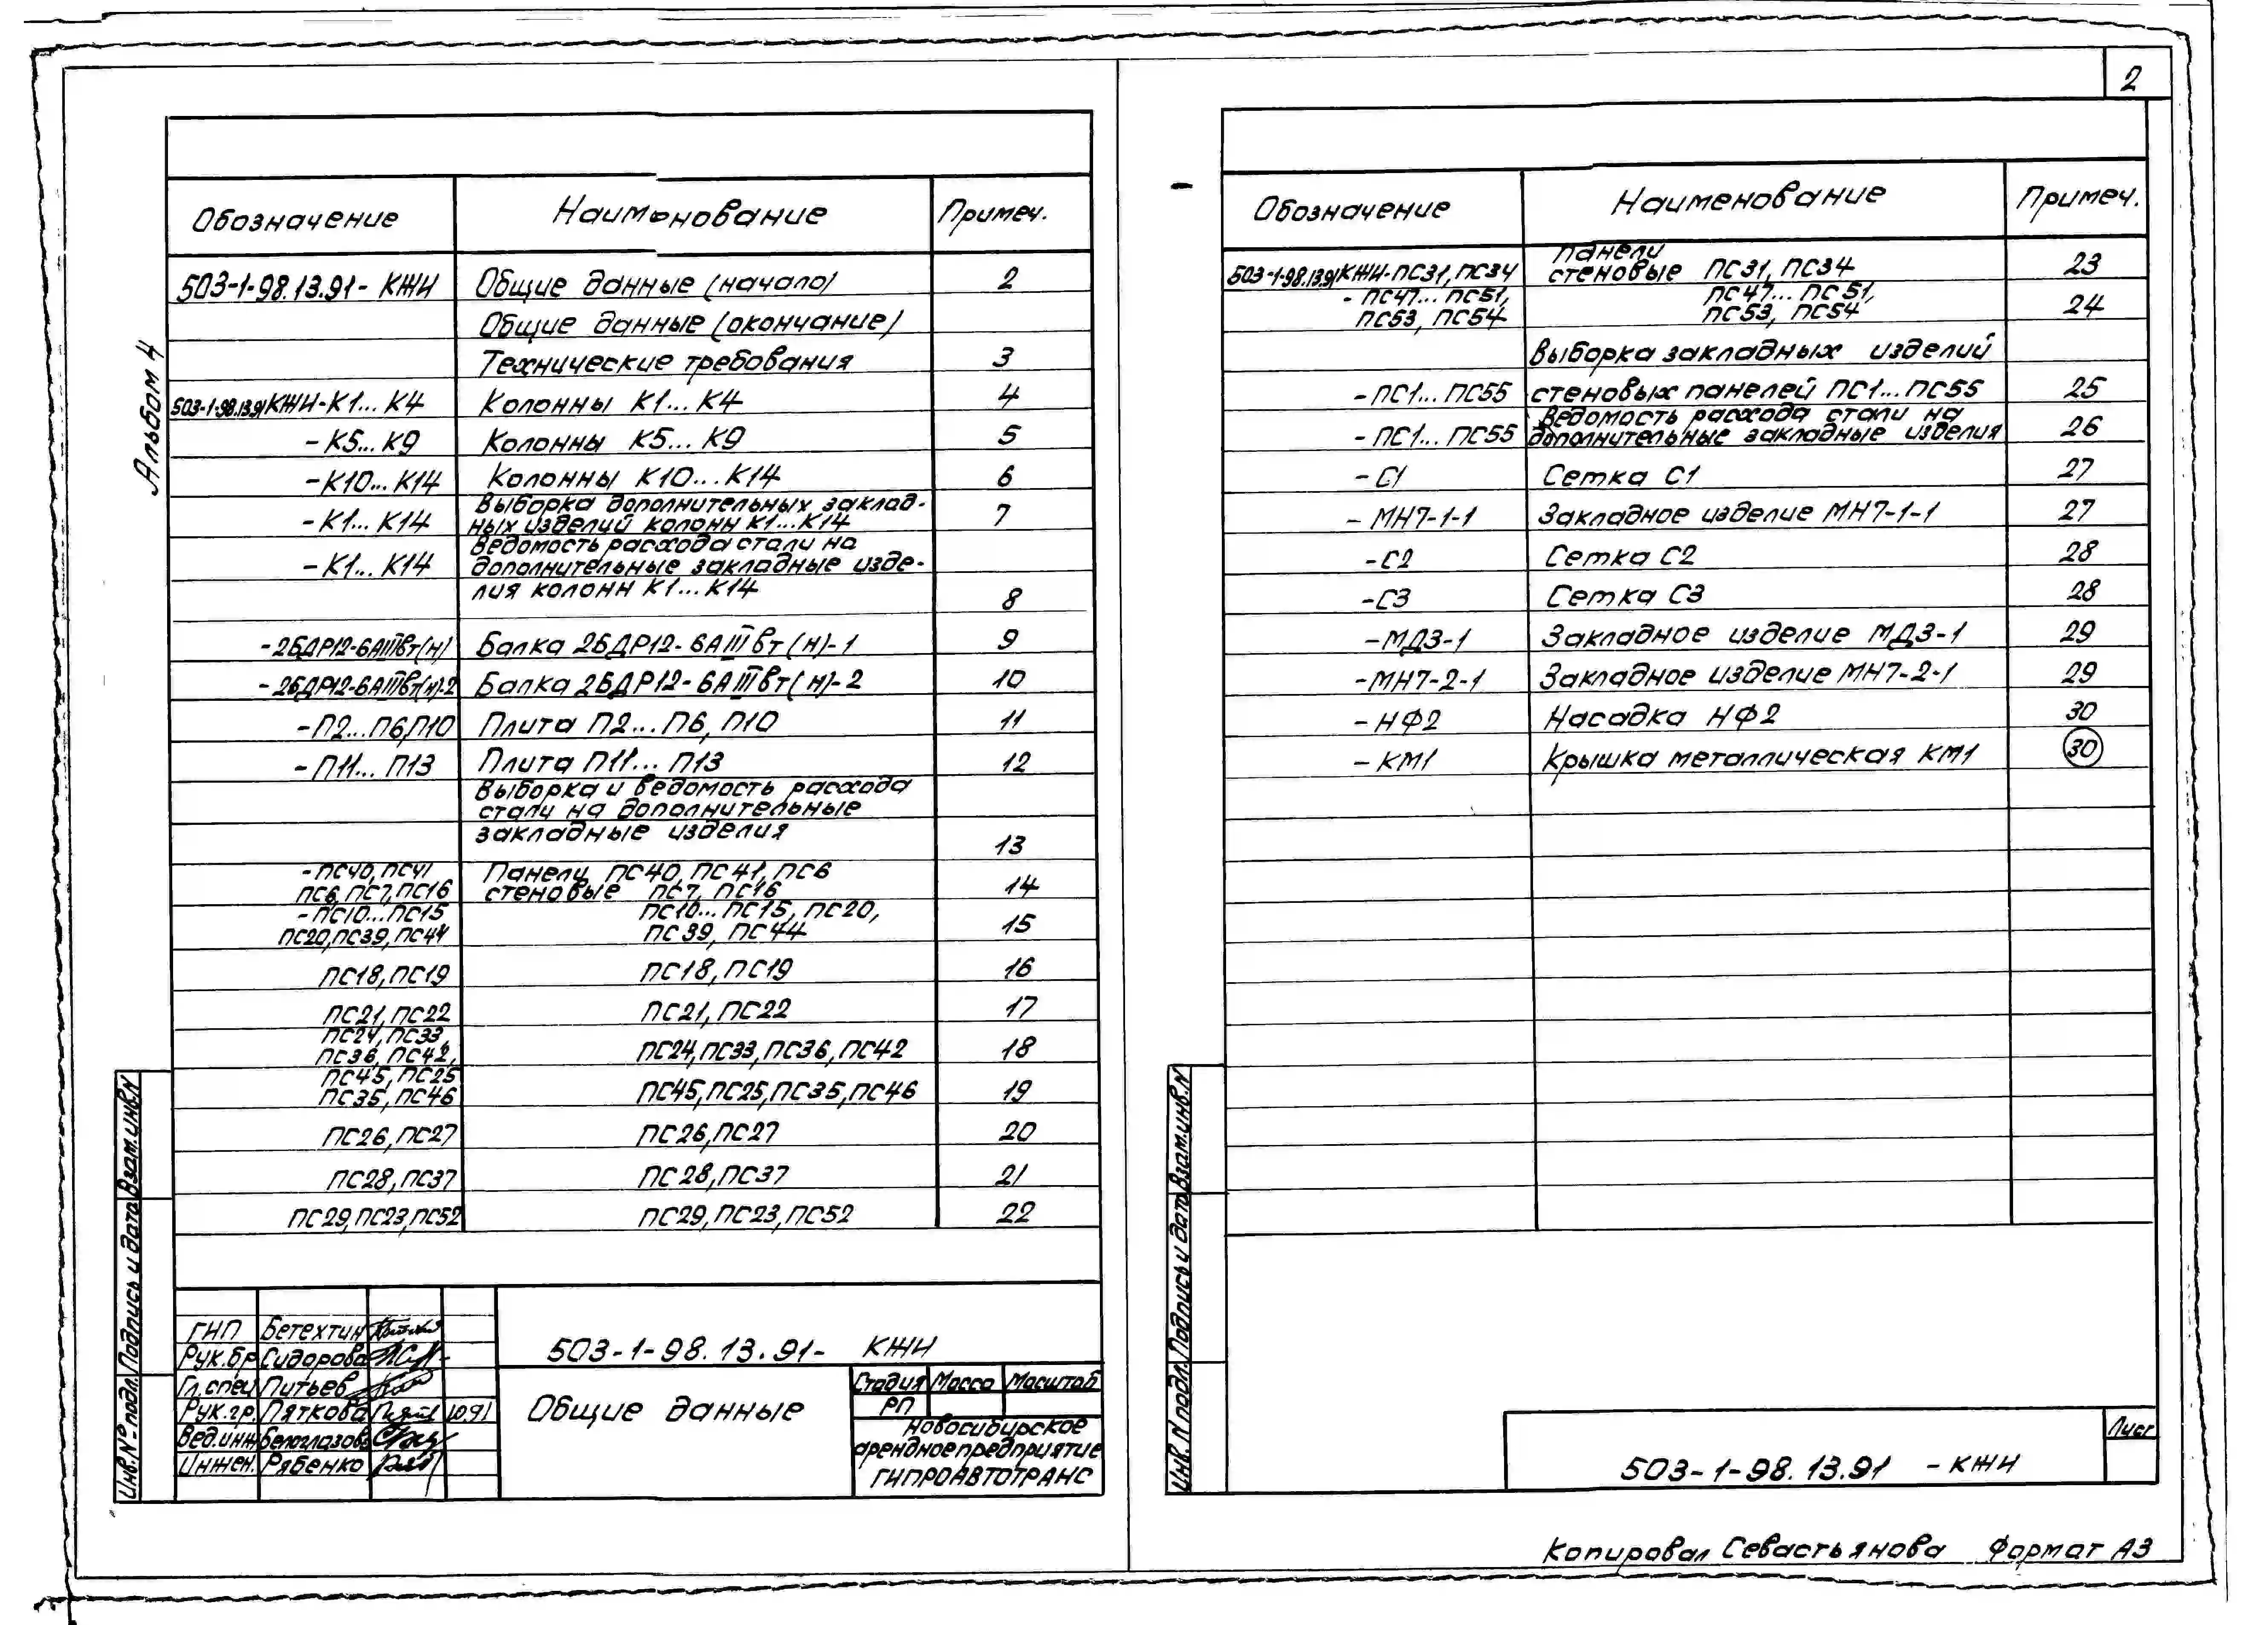 2
Альбом 4
Обозначение Наименование Примеч.
503-1-98.13.91- КЖИ Общие данные (начало) 2
Общие данные (окончание)
Технические требования 3
503-1-98.13.91КЖИ-К1... К4 Колонны К1... К4 4
-К5... К9 Колонны К5... К9 5
-К10... К14 Колонны К10... К14 6
-К1... К14 Выборка дополнительных заклад-
ных изделий колонн К1...К14 7
-К1... К14 Ведомость расхода стали на
дополнительные закладные изде-
лия колонн К1...К14 8
-2БДР12-6АIIIвт(н) Балка 2БДР12-6АIIIвт(н)-1 9
-2БДР12-6АIIIвт(н)-2 Балка 2БДР12-6АIIIвт(н)-2 10
-П2...П6,П10 Плита П2...П6, П10 11
-П11... П13 Плита П11... П13 12
Выборка и ведомость расхода
стали на дополнительные
закладные изделия 13
-ПС40,ПС41 Панели ПС40,ПС41,ПС6
ПС6,ПС7,ПС16 стеновые ПС7, ПС16 14
-ПС10...ПС15 ПС10... ПС15, ПС20,
ПС20,ПС39,ПС44 ПС39, ПС44 15
ПС18,ПС19 ПС18,ПС19 16
ПС21,ПС22 ПС21,ПС22 17
ПС24,ПС33,
ПС36,ПС42, ПС24,ПС33,ПС36,ПС42 18
ПС45,ПС25
ПС35,ПС46 ПС45,ПС25,ПС35,ПС46 19
ПС26,ПС27 ПС26,ПС27 20
ПС28,ПС37 ПС28,ПС37 21
ПС29,ПС23,ПС52 ПС29,ПС23,ПС52 22
Инв.№ подл. Подпись и дата Взам.инв.N
ГИП Бетехтин
Рук.бр Сидорова
Гл.спец Питьев
Рук.гр. Пяткова 10.91
Вед.инж Белоглазов
Инжен. Рябенко
503-1-98.13.91- КЖИ
Общие данные
Стадия Масса Масштаб
РП
Новосибирское
арендное предприятие
ГИПРОАВТОТРАНС
Обозначение Наименование Примеч.
503-1-98.13.91КЖИ-ПС31,ПС34 Панели
стеновые ПС31, ПС34 23
-ПС47... ПС51, ПС47... ПС51,
ПС53, ПС54 ПС53, ПС54 24
Выборка закладных изделий
-ПС1... ПС55 стеновых панелей ПС1...ПС55 25
-ПС1... ПС55 Ведомость расхода стали на
дополнительные закладные изделия 26
-С1 Сетка С1 27
-МН7-1-1 Закладное изделие МН7-1-1 27
-С2 Сетка С2 28
-С3 Сетка С3 28
-МД3-1 Закладное изделие МД3-1 29
-МН7-2-1 Закладное изделие МН7-2-1 29
-НФ2 Насадка НФ2 30
-КМ1 Крышка металлическая КМ1 30
Инв.N подл. Подпись и дата Взам.инв.N
503-1-98.13.91 -КЖИ
Лист
Копировал Севастьянова Формат А3